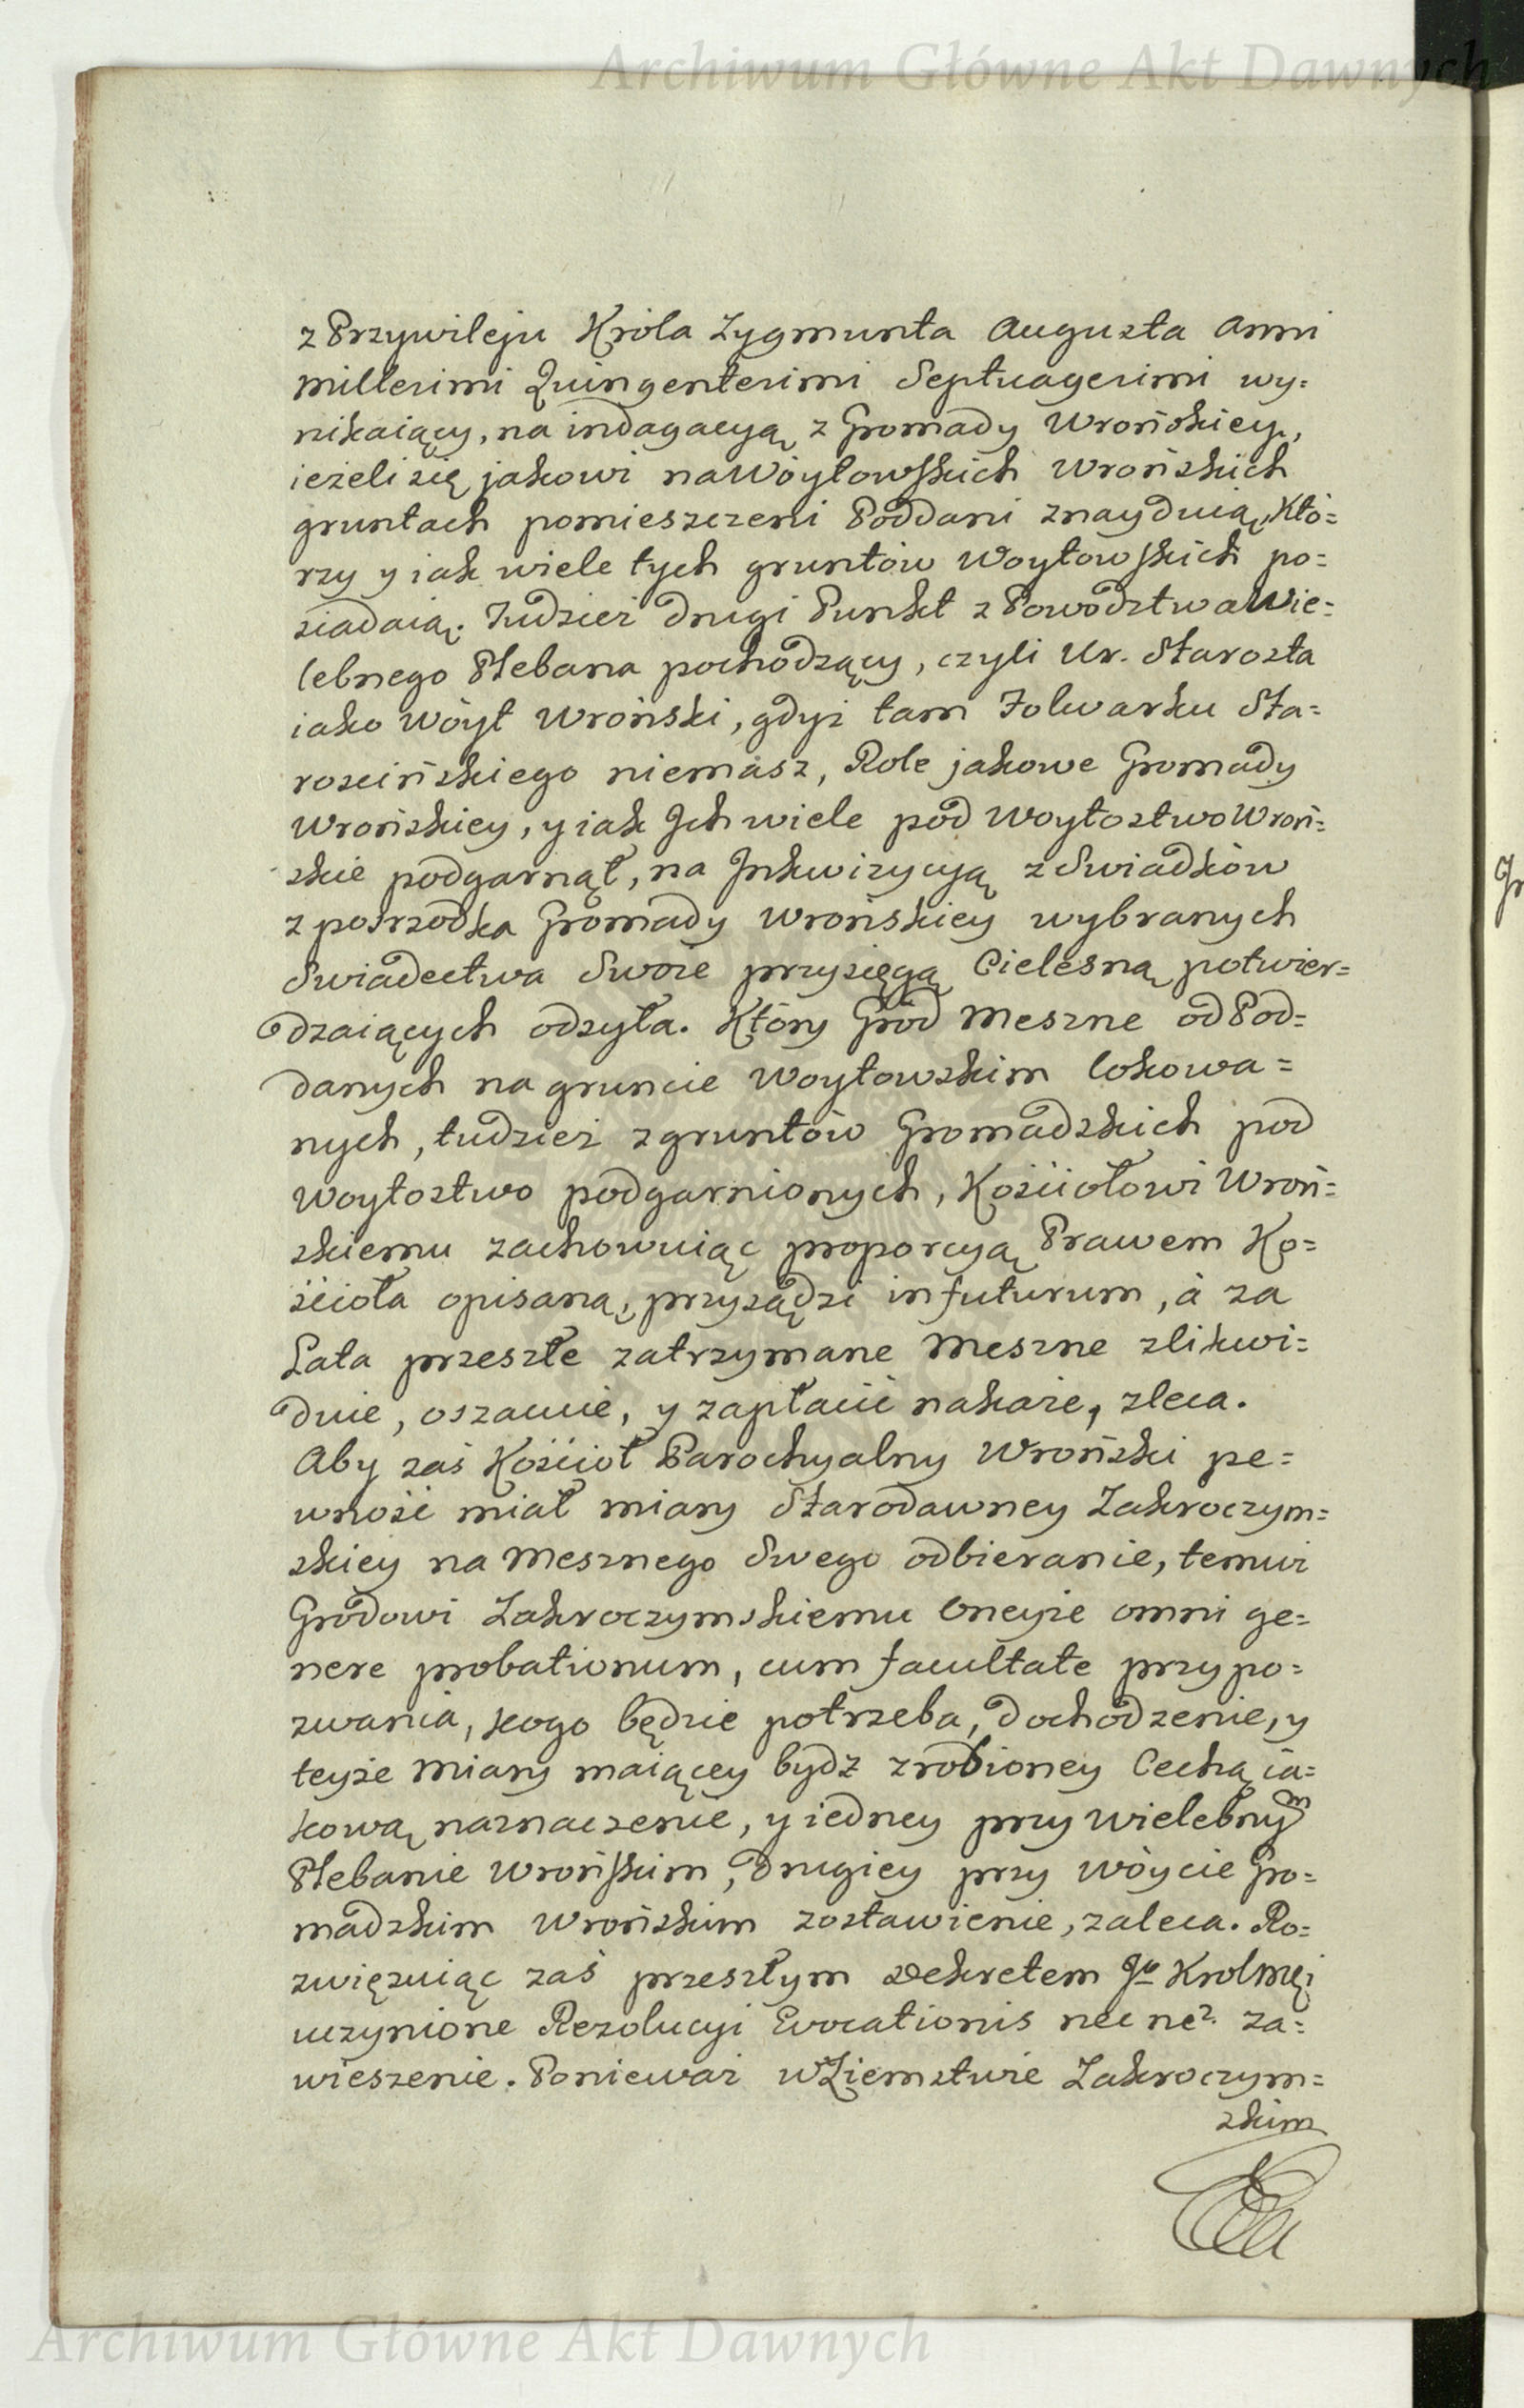 Archiwum Główne Akt Dawnych
z Przywileju Króla Zygmunta Augusta Anni
Millesimi Quingentesimi Septuagesimi wy=
nikaiący, na indagacyą z Gromady Wrońskiey,
ieżeli się jakowi na Wóytowskich Wrońskich
gruntach pomieszczeni Poddani znayduią, Któ=
rzy y iak wiele tych gruntów Woytowskich po=
siadaią. Tudzież drugi Punkt z Powodztwa Wie=
lebnego Plebana pochodzący, czyli Ur. Starosta
iako Wóyt Wroński, gdyż tam Folwarku Sta=
rościńskiego niemasz, Role jakowe Gromady
Wrońskiey, y iak Ich wiele pod Woytostwo Wroń=
skie podgarnął, na Inkwizycyą z Swiadków
z posrzodka Gromady Wrońskiey wybranych
Swiadectwa Swoie przysięgą Cielesną potwier=
dzaiących odsyła. Który Gród Meszne od Pod=
danych na gruncie Woytowskim lokowa=
nych, tudzież z gruntów Gromadzkich pod
Woytostwo podgarnionych, Kościołowi Wroń=
skiemu zachowuiąc proporcyą Prawem Ko=
ścioła opisaną, przysądzi in futurum, à za
Lata przeszłe zatrzymane Meszne zlikwi=
duie, oszacuie, y zapłacić nakaże, zleca.
Aby zaś Kościoł Parochyalny Wroński pe=
wność miał miary Starodawney Zakroczym=
skiey na Mesznego Swego odbieranie, temuż
Grodowi Zakroczymskiemu Oneyże omni ge=
nere probationum, cum facultate przypo=
zwania, kogo będzie potrzeba, dochodzenie, y
teyże Miary maiącey bydz zrobioney Cechą ia=
kową naznaczenie, y iedney przy Wielebnym
Plebanie Wrońskim, drugiey przy Wóycie Gro=
madzkim Wrońskim zostawienie, zaleca. Ro=
zwięzuiąc zaś przeszłym Dekretem Jgo Krolmci
uczynione Rezolucyi Evocationis nec ne? za=
wieszenie. Ponieważ w Ziemstwie Zakroczym=
skim
Archiwum Główne Akt Dawnych